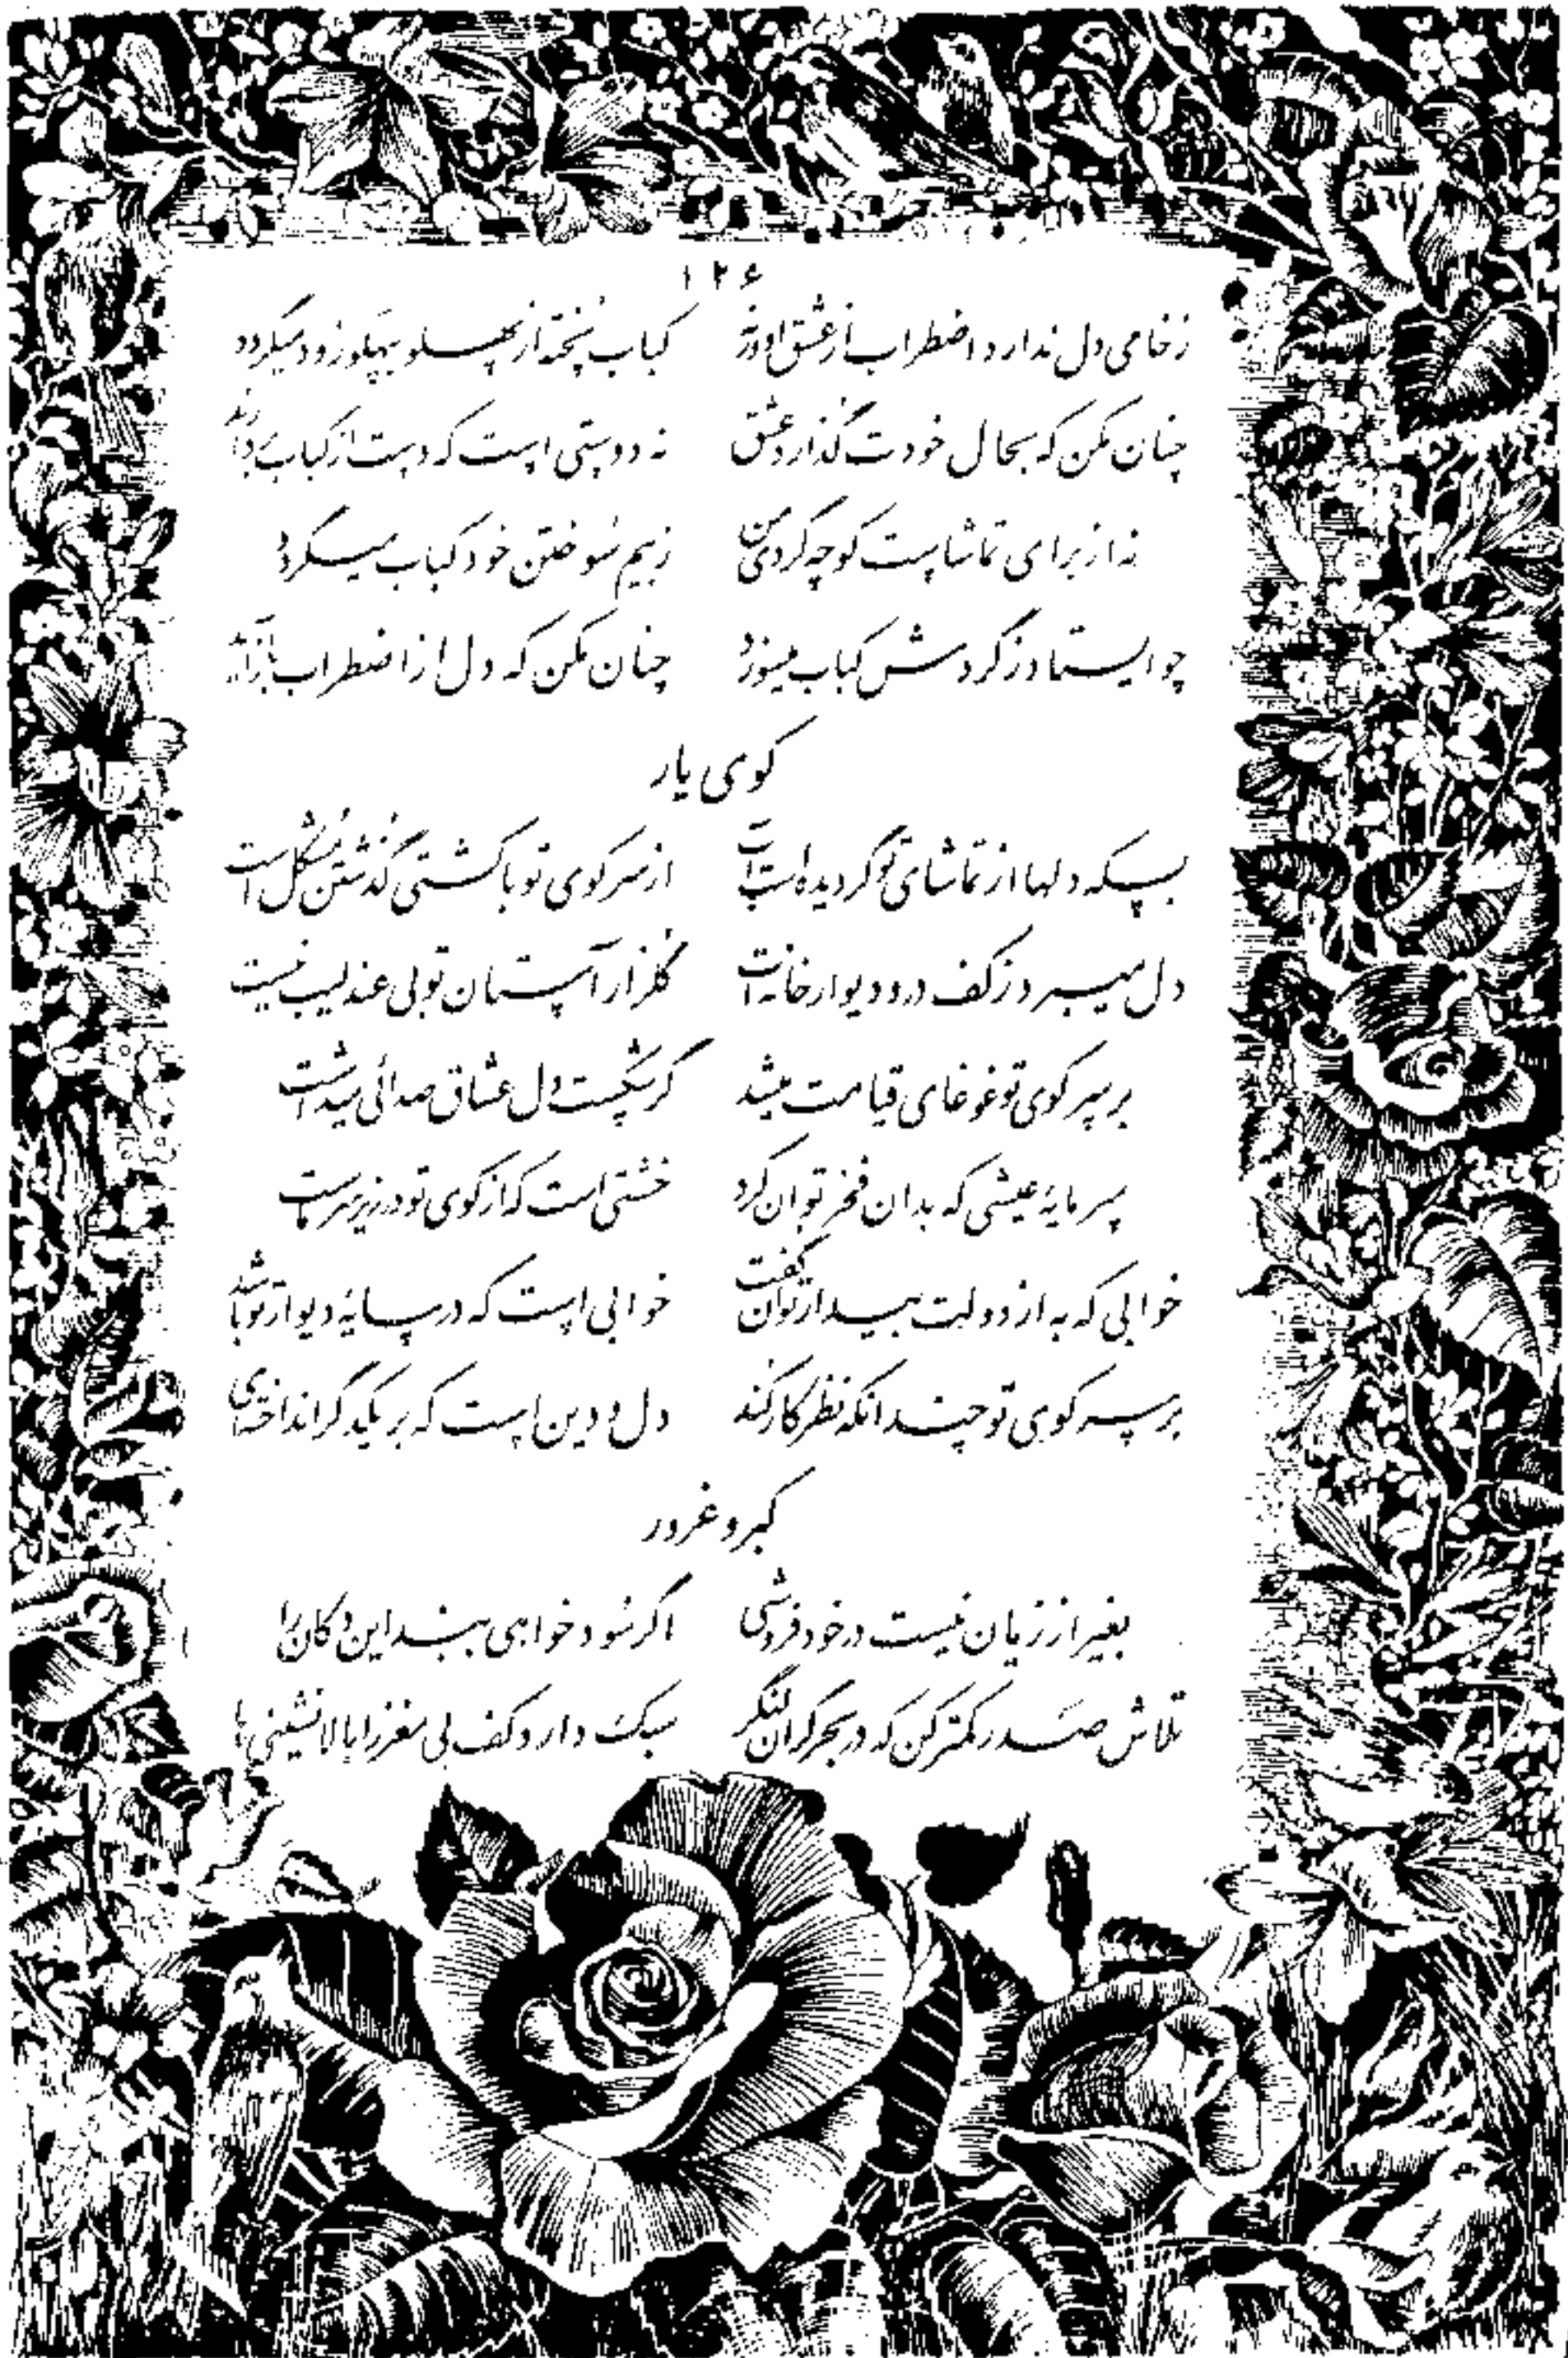 ۱۲۶
زخامی دل ندارد اضطراب از عشق او ورنه کباب پخته از پهلو بپهلو زود میگردد
چنان مکن که بحال خودت گذارد عشق نه دوستی است که دست از کباب بردارند
نه از برای تماشاست کوچه گردی من ز بیم سوختن خود کباب میگردد
چو ایستاد ز گردش کباب میسوزد چنان مکن که دل از اضطراب بازآید
کوی یار
بسکه دلها از تماشای تو گردیده است آب از سر کوی تو با کشتی گذشتن مشکل است
دل میبرد ز کف در و دیوار خانه ات گلزار آستان تو بی عندلیب نیست
بر سر کوی تو غوغای قیامت میشد گر شکست دل عشاق صدائی میداشت
سرمایه عیشی که بدان فخر توان کرد خشتی است که از کوی تو در زیر سر ماست
خوابی که به از دولت بیدار توان گفت خوابی است که در سایه دیوار تو باشد
بر سر کوی تو چندانکه نظر کار کند دل و دین است که بر یکدگر انداخته ای
کبر و غرور
بغیر از زیان نیست در خودفروشی اگر سود خواهی ببند این دکان را
تلاش صدر کمتر کن که در بحر گران لنگر سبک دارد کف بی مغز را بالانشینی ها